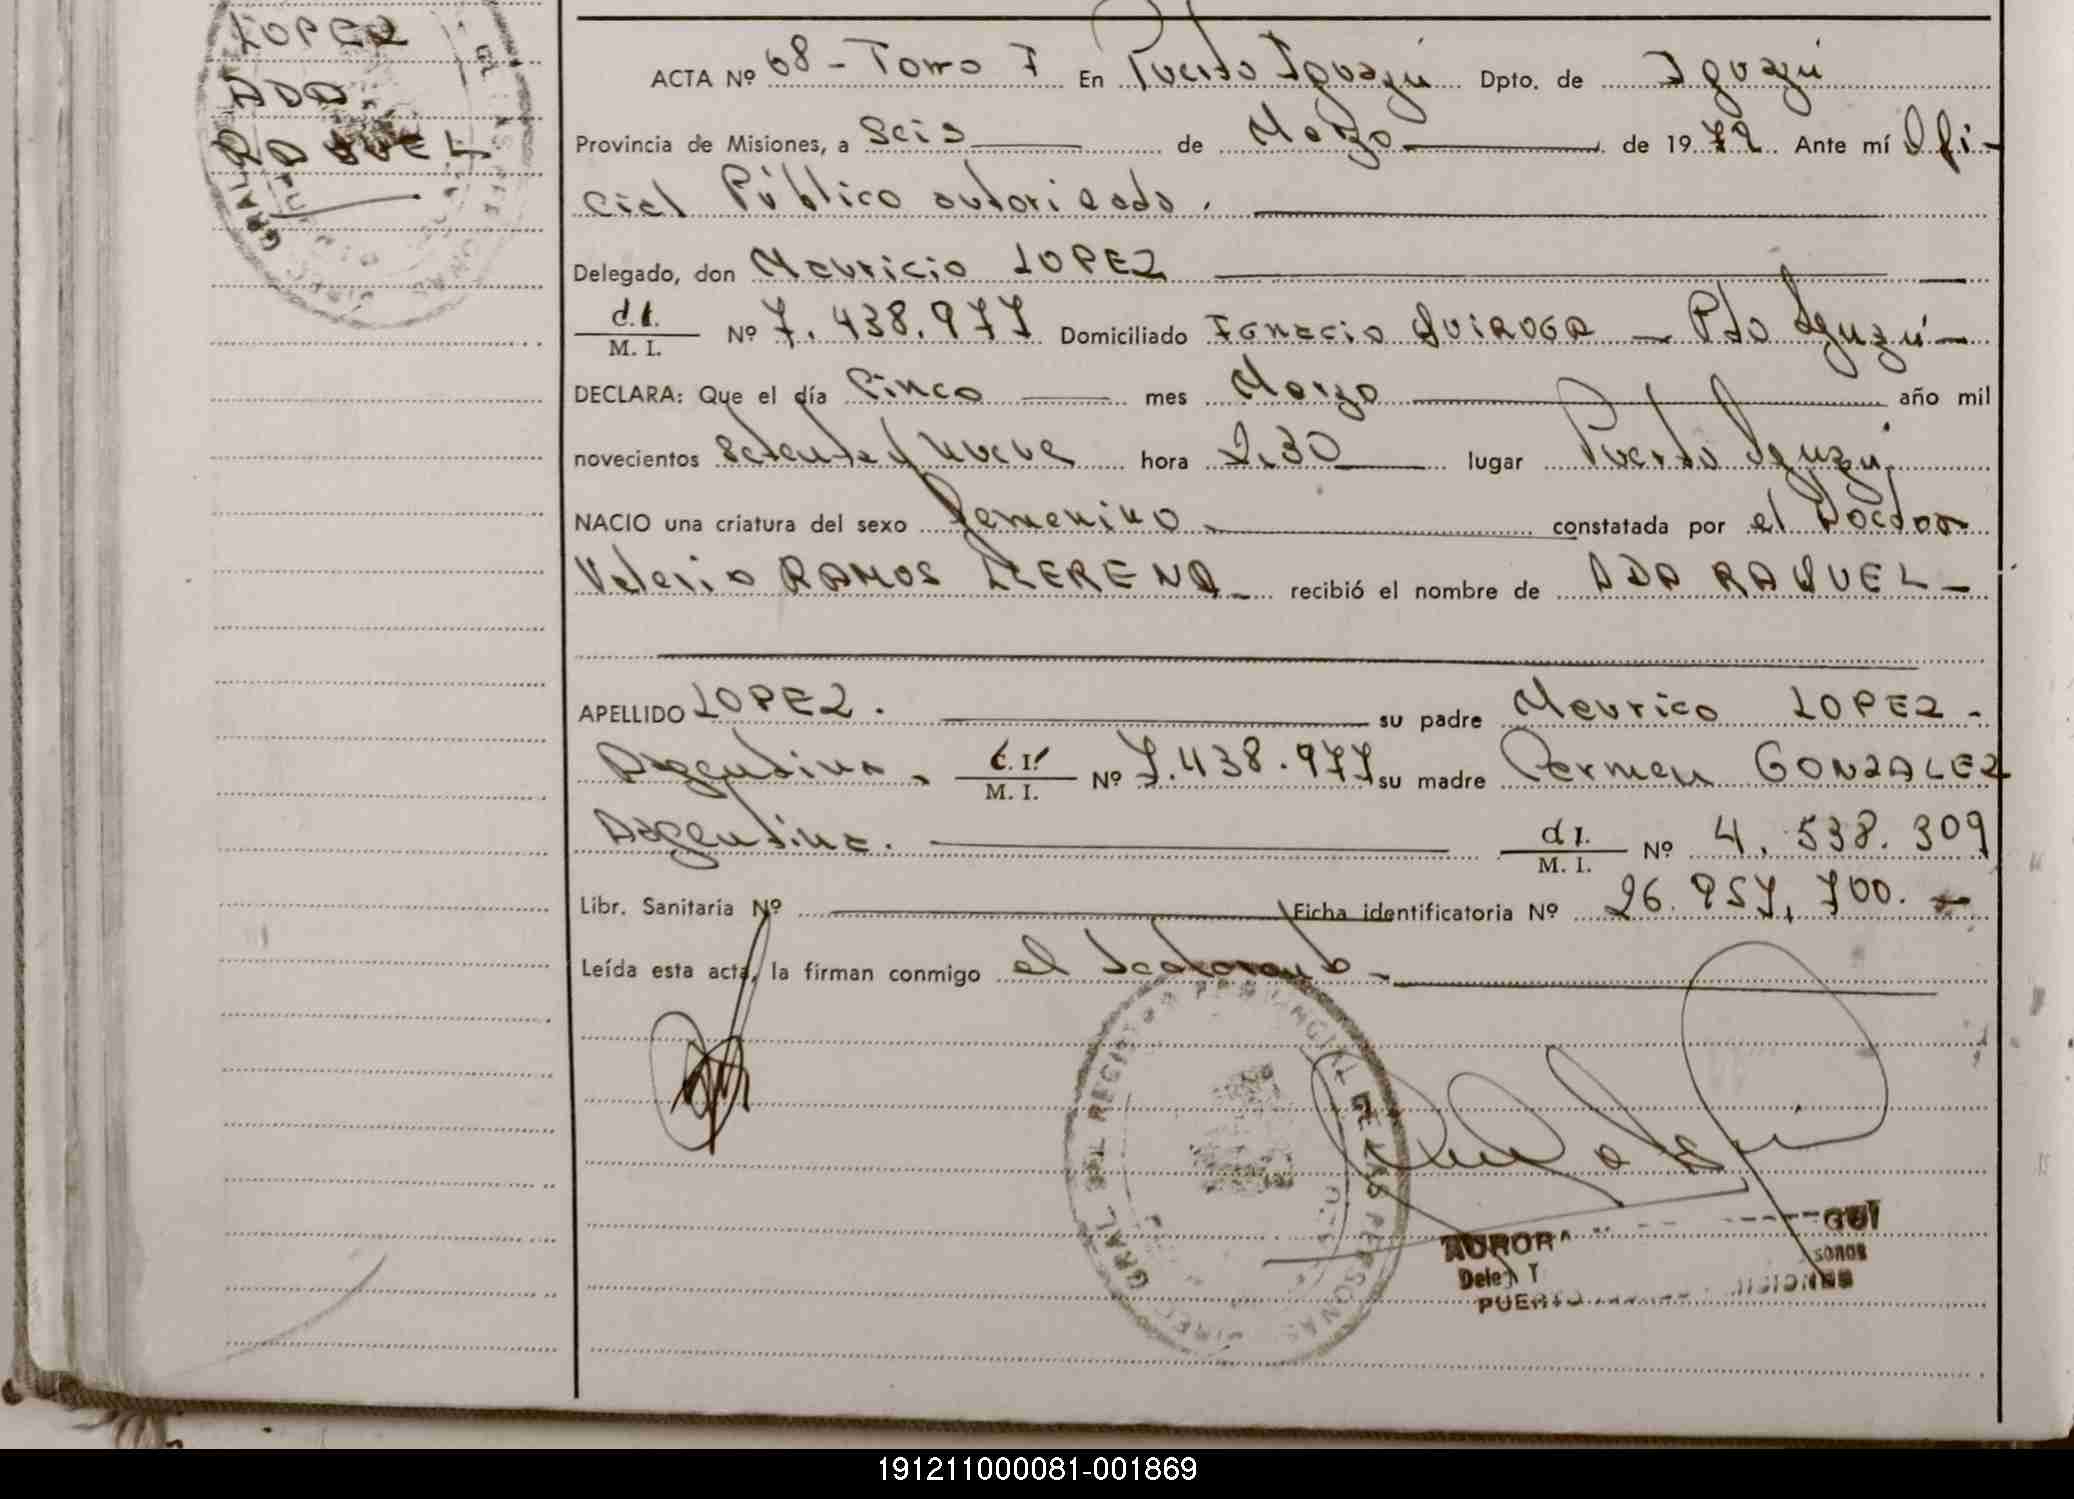 LOPEZ
ADA
RAQUEL
ACTA Nº 68 - Tomo I En Puerto Iguazú Dpto. de Iguazú
Provincia de Misiones, a Seis de Marzo de 1979. Ante mí Ofi-
cial Público autorizado.
Delegado, don Mauricio LOPEZ
d.I. M. I. Nº 7.438.977 Domiciliado Ignacio QUIROGA - Pto Iguazú -
DECLARA: Que el día Cinco mes Marzo año mil
novecientos Setenta y Nueve hora 2.30 lugar Puerto Iguazú
NACIO una criatura del sexo Femenino constatada por el Doctor
Valerio RAMOS LLERENA - recibió el nombre de ADA RAQUEL -
APELLIDO LOPEZ. su padre Maurico LOPEZ -
Argentina. M. I. Nº 7.438.977 su madre Carmen GONZALEZ
Argentina. d I. M. I. Nº 4.538.309
Libr. Sanitaria Nº Ficha identificatoria Nº 26.957.700.
Leída esta acta, la firman conmigo el
GRAL. DEL REGISTRO PROVINCIAL DE LAS PERSONAS
AURORA GUI
PUERTO MISIONES
191211000081-001869